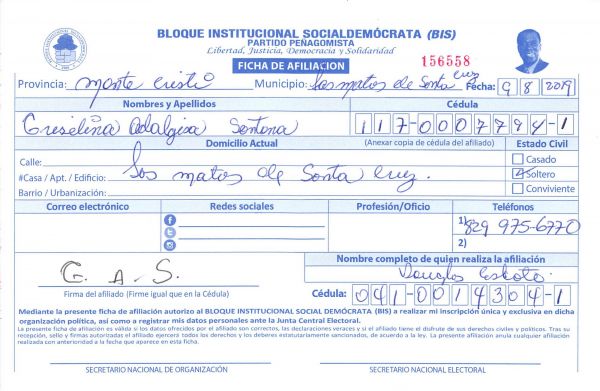 BLOQUE INSTITUCIONAL SOCIALDEMÓCRATA (BIS)
PARTIDO PEÑAGOMISTA
Libertad, Justicia, Democracia y Solidaridad
FICHA DE AFILIACION
156558
Provincia: Monte Cristi Municipio: Las matas de Santa Cruz Fecha: 9 8 2019
Nombres y Apellidos Cédula
Creseliña Adalgisa Santana 117-0007794-1
Domicilio Actual (Anexar copia de cédula del afiliado) Estado Civil
Calle: Casado
#Casa / Apt. / Edificio: Las matas de Santa Cruz. Soltero
Barrio / Urbanización: Conviviente
Correo electrónico Redes sociales Profesión/Oficio Teléfonos
1) 829 975-6770
2)
Nombre completo de quien realiza la afiliación
G. A. S. Douglas
Firma del afiliado (Firme igual que en la Cédula) Cédula: 041-0014304-1
Mediante la presente ficha de afiliación autorizo al BLOQUE INSTITUCIONAL SOCIAL DEMÓCRATA (BIS) a realizar mi inscripción única y exclusiva en dicha
organización política, así como a registrar mis datos personales ante la Junta Central Electoral.
La presente ficha de afiliación es válida si los datos ofrecidos por el afiliado son correctos, las declaraciones veraces y si el afiliado tiene el disfrute de sus derechos civiles y políticos. Tras su
recepción, sello y firmas autorizadas el afiliado ejercerá todos los derechos y los deberes estatutariamente sancionados, de acuerdo a la ley. La presente afiliación anula cualquier afiliación
realizada con anterioridad a la fecha que aparece en esta ficha.
SECRETARIO NACIONAL DE ORGANIZACIÓN SECRETARIO NACIONAL ELECTORAL